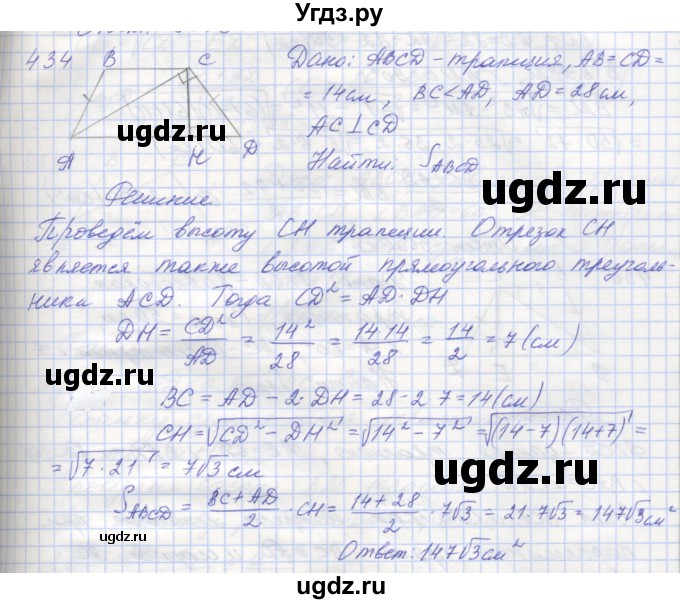 Угдз.ру
434 B C Дано: ABCD – трапеция, AB = CD =
= 14 см, BC < AD, AD = 28 см,
ugdz.ru
AC ⊥ CD
A H D Найти: S_ABCD
ugdz.ru
Решение.
Проведём высоту CH трапеции. Отрезок CH
является также высотой прямоугольного треуголь-
ника ACD. Тогда CD² = AD · DH
DH = CD²/AD = 14²/28 = 14·14/28 = 14/2 = 7 (см)
ugdz.ru
BC = AD – 2 · DH = 28 – 2 · 7 = 14 (см)
CH = √(CD² – DH²) = √(14² – 7²) = √((14–7)(14+7)) =
= √(7 · 21) = 7√3 см
ugdz.ru
S_ABCD = (BC + AD)/2 · CH = (14 + 28)/2 · 7√3 = 21 · 7√3 = 147√3 см²
ugdz.ru
Ответ: 147√3 см²
ugdz.ru